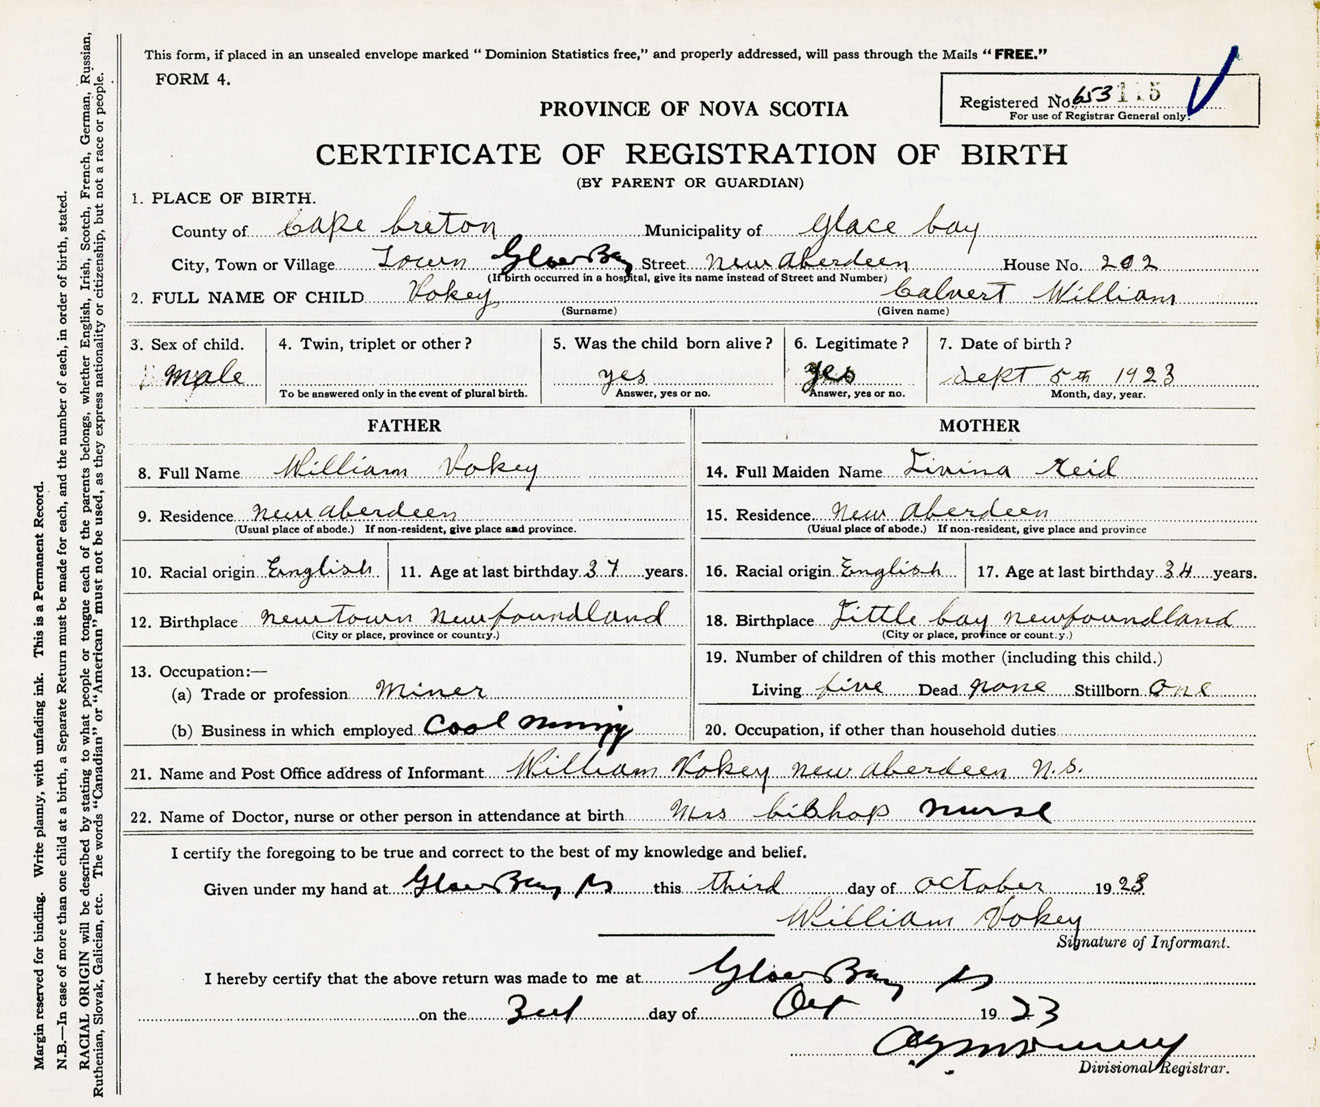 This form, if placed in an unsealed envelope marked “ Dominion Statistics free,” and properly addressed, will pass through the Mails “ FREE.”
FORM 4.
Registered No. 653
For use of Registrar General only.
PROVINCE OF NOVA SCOTIA
CERTIFICATE OF REGISTRATION OF BIRTH
(BY PARENT OR GUARDIAN)
1. PLACE OF BIRTH.
County of Cape breton Municipality of Glace bay
City, Town or Village Town Glace Bay Street New aberdeen House No. 202
(If birth occurred in a hospital, give its name instead of Street and Number)
2. FULL NAME OF CHILD Vokey Calvert William
(Surname) (Given name)
3. Sex of child. 4. Twin, triplet or other ? 5. Was the child born alive ? 6. Legitimate ? 7. Date of birth ?
Male yes yes Sept 5th 1923
To be answered only in the event of plural birth. Answer, yes or no. Answer, yes or no. Month, day, year.
FATHER MOTHER
8. Full Name William Vokey 14. Full Maiden Name Livina Reid
9. Residence New aberdeen 15. Residence New aberdeen
(Usual place of abode.) If non-resident, give place and province. (Usual place of abode.) If non-resident, give place and province
10. Racial origin English 11. Age at last birthday 37 years. 16. Racial origin English 17. Age at last birthday 34 years.
12. Birthplace newtown newfoundland 18. Birthplace Little bay newfoundland
(City or place, province or country.) (City or place, province or count.y.)
13. Occupation:— 19. Number of children of this mother (including this child.)
(a) Trade or profession Miner Living five Dead none Stillborn one
(b) Business in which employed Coal Mining 20. Occupation, if other than household duties
21. Name and Post Office address of Informant William Vokey new aberdeen N.S.
22. Name of Doctor, nurse or other person in attendance at birth Mrs bishop nurse
I certify the foregoing to be true and correct to the best of my knowledge and belief.
Given under my hand at Glace Bay NS this third day of october 1923
William Vokey
Signature of Informant.
I hereby certify that the above return was made to me at Glace Bay NS
on the 3rd day of Oct 1923
Divisional Registrar.
Margin reserved for binding. Write plainly, with unfading ink. This is a Permanent Record.
N.B.—In case of more than one child at a birth, a Separate Return must be made for each, and the number of each, in order of birth, stated.
RACIAL ORIGIN will be described by stating to what people or tongue each of the parents belongs, whether English, Irish, Scotch, French, German, Russian,
Ruthenian, Slovak, Galician, etc. The words “Canadian” or “American” must not be used, as they express nationality or citizenship, but not a race or people.